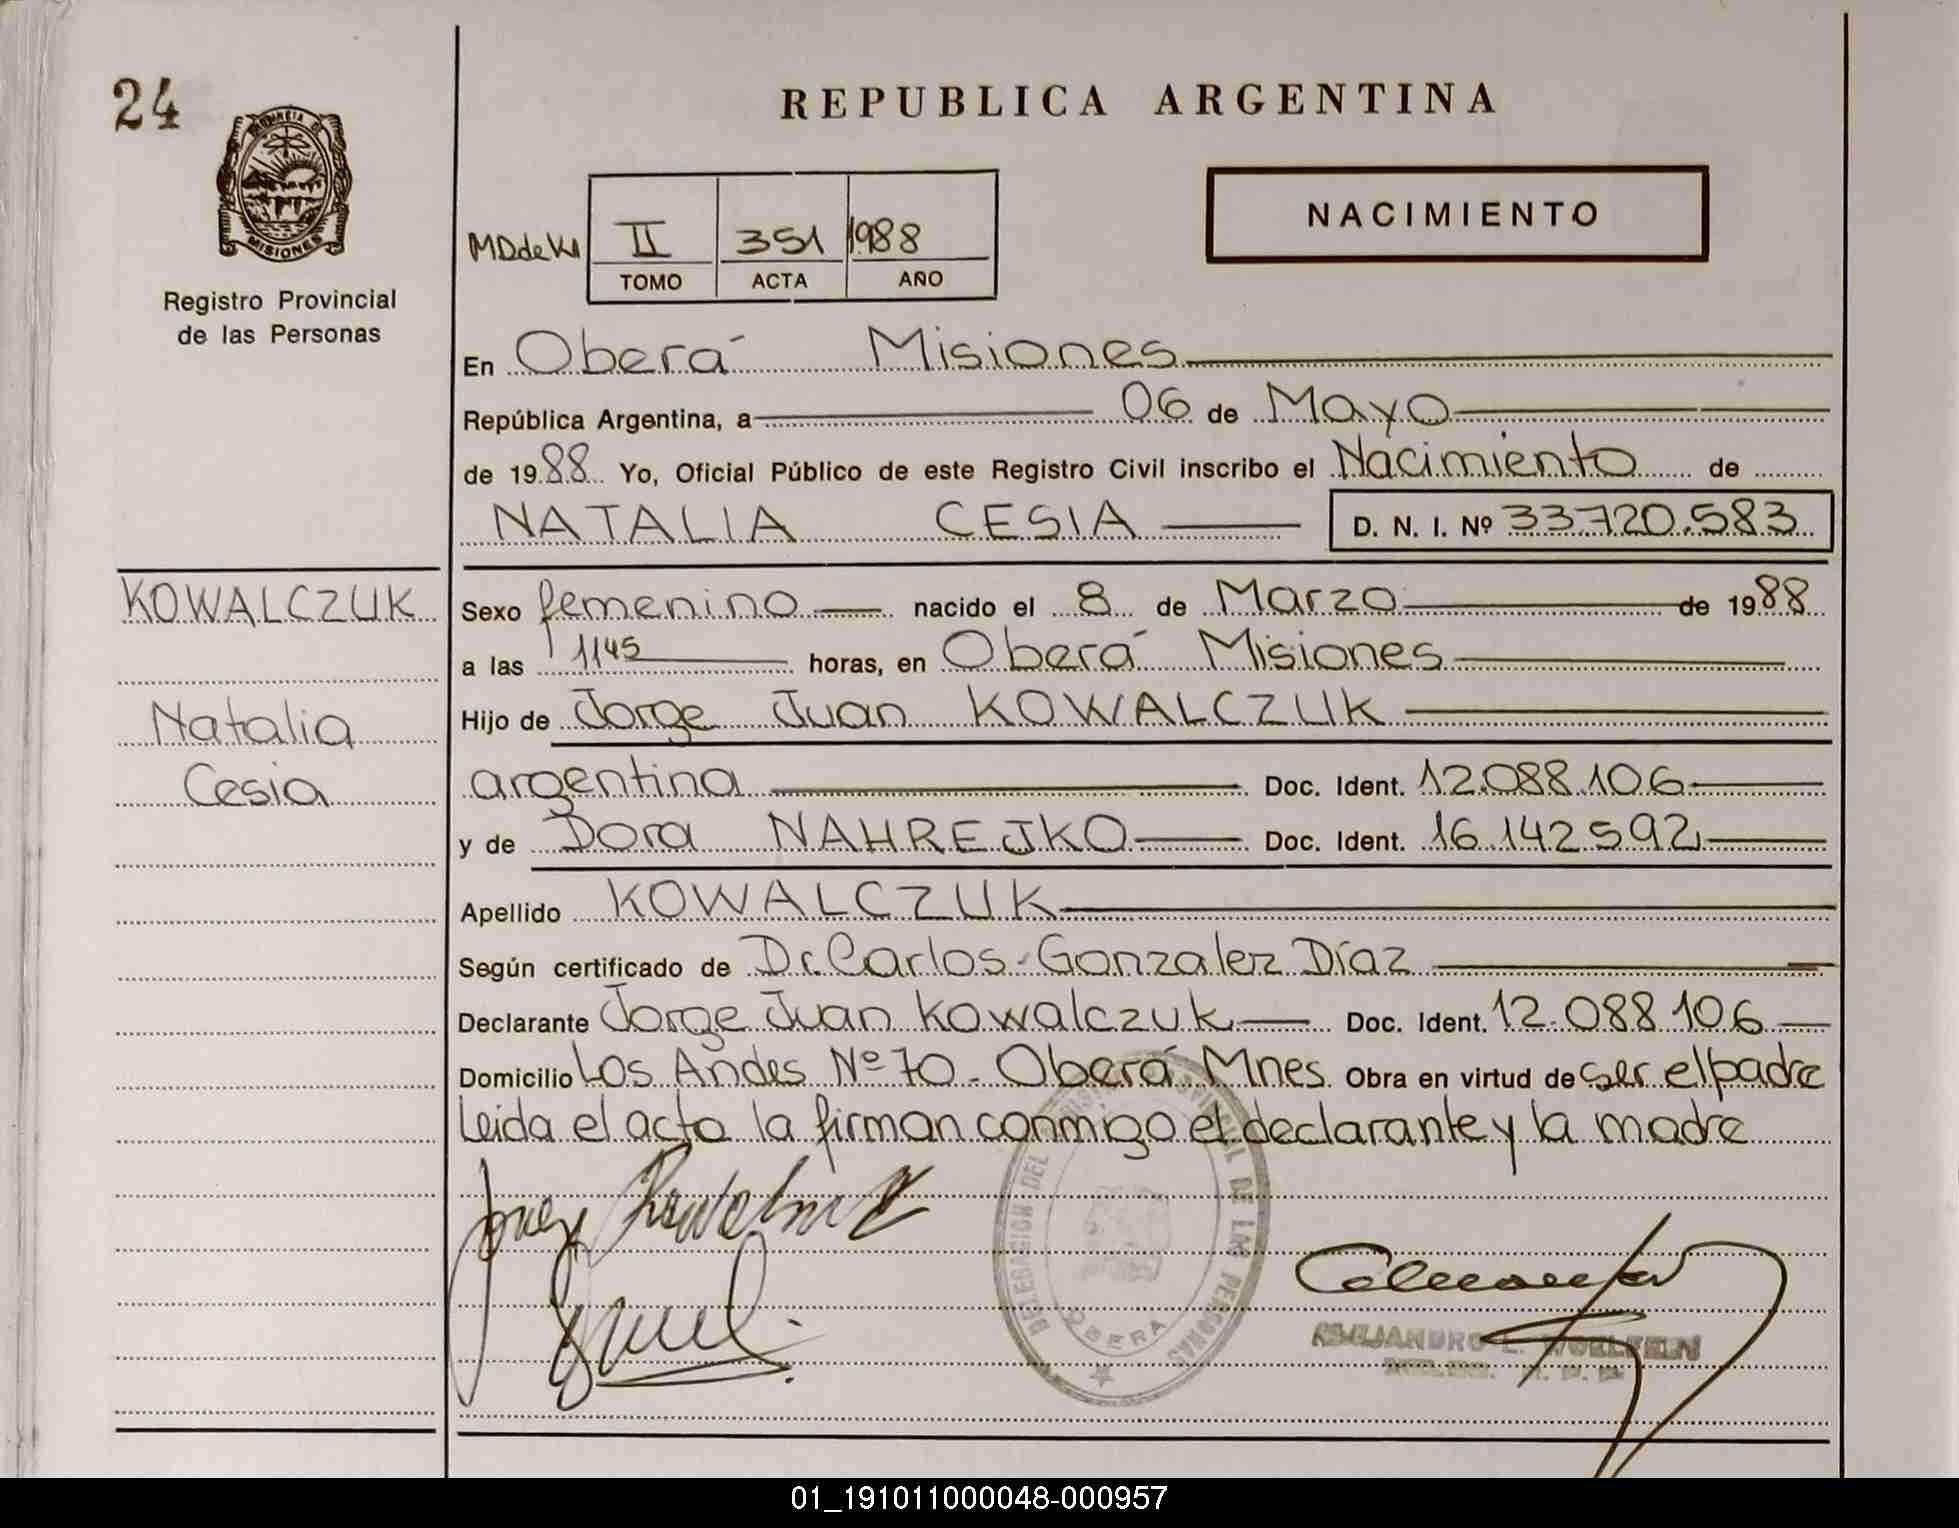 24
REPUBLICA ARGENTINA
PROVINCIA DE
MISIONES
Registro Provincial
de las Personas
NACIMIENTO
II 351 1988
TOMO ACTA AÑO
En Oberá Misiones
República Argentina, a 06 de Mayo
de 1988 Yo, Oficial Público de este Registro Civil inscribo el Nacimiento de
NATALIA CESIA D. N. I. Nº 33.720.583
KOWALCZUK
Natalia
Cesia
Sexo femenino nacido el 8 de Marzo de 1988
a las 1145 horas, en Oberá Misiones
Hijo de Jorge Juan KOWALCZUK
argentina Doc. Ident. 12.088.106
y de Dora NAHREJKO Doc. Ident. 16.142.592
Apellido KOWALCZUK
Según certificado de Dr. Carlos Gonzalez Díaz
Declarante Jorge Juan Kowalczuk Doc. Ident. 12.088.106
Domicilio Los Andes Nº 70 - Oberá Mnes. Obra en virtud de ser el padre
Leida el acta la firman conmigo el declarante y la madre
DELEGACION DEL REGISTRO PROVINCIAL DE LAS PERSONAS
OBERA
ALEJANDRO L.
01_191011000048-000957